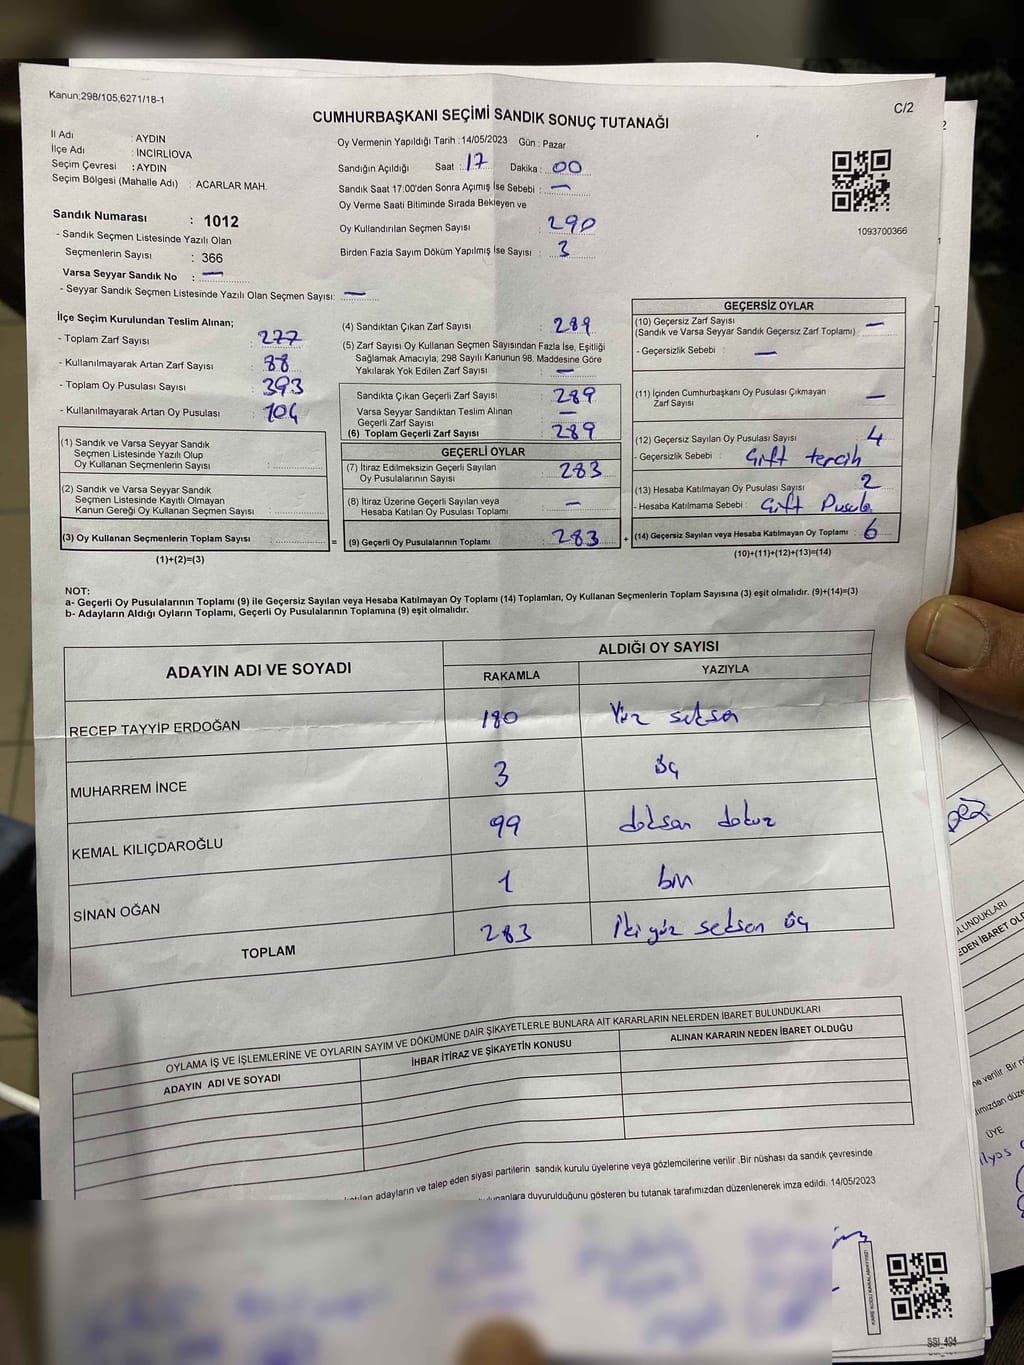 Kanun;298/105;6271/18-1
C/2
CUMHURBAŞKANI SEÇİMİ SANDIK SONUÇ TUTANAĞI
İl Adı : AYDIN
İlçe Adı : İNCİRLİOVA
Seçim Çevresi : AYDIN
Seçim Bölgesi (Mahalle Adı) : ACARLAR MAH.
Oy Vermenin Yapıldığı Tarih : 14/05/2023 Gün : Pazar
Sandığın Açıldığı Saat : 17 Dakika : 00
Sandık Saat 17:00'den Sonra Açımış İse Sebebi : —
Oy Verme Saati Bitiminde Sırada Bekleyen ve
Oy Kullandırılan Seçmen Sayısı : 290
Birden Fazla Sayım Döküm Yapılmış İse Sayısı : 3
1093700366
Sandık Numarası : 1012
- Sandık Seçmen Listesinde Yazılı Olan
Seçmenlerin Sayısı : 366
Varsa Seyyar Sandık No : —
- Seyyar Sandık Seçmen Listesinde Yazılı Olan Seçmen Sayısı: —
İlçe Seçim Kurulundan Teslim Alınan;
- Toplam Zarf Sayısı : 277
- Kullanılmayarak Artan Zarf Sayısı : 88
- Toplam Oy Pusulası Sayısı : 393
- Kullanılmayarak Artan Oy Pusulası : 104
(1) Sandık ve Varsa Seyyar Sandık
Seçmen Listesinde Yazılı Olup
Oy Kullanan Seçmenlerin Sayısı :
(2) Sandık ve Varsa Seyyar Sandık
Seçmen Listesinde Kayıtlı Olmayan
Kanun Gereği Oy Kullanan Seçmen Sayısı :
(3) Oy Kullanan Seçmenlerin Toplam Sayısı :
(1)+(2)=(3)
(4) Sandıktan Çıkan Zarf Sayısı : 289
(5) Zarf Sayısı Oy Kullanan Seçmen Sayısından Fazla İse, Eşitliği
Sağlamak Amacıyla; 298 Sayılı Kanunun 98. Maddesine Göre
Yakılarak Yok Edilen Zarf Sayısı : —
Sandıkta Çıkan Geçerli Zarf Sayısı : 289
Varsa Seyyar Sandıktan Teslim Alınan
Geçerli Zarf Sayısı : —
(6) Toplam Geçerli Zarf Sayısı : 289
GEÇERLİ OYLAR
(7) İtiraz Edilmeksizin Geçerli Sayılan
Oy Pusulalarının Sayısı : 283
(8) İtiraz Üzerine Geçerli Sayılan veya
Hesaba Katılan Oy Pusulası Toplamı : —
= (9) Geçerli Oy Pusulalarının Toplamı : 283 +
GEÇERSİZ OYLAR
(10) Geçersiz Zarf Sayısı : —
(Sandık ve Varsa Seyyar Sandık Geçersiz Zarf Toplamı)
- Geçersizlik Sebebi : —
(11) İçinden Cumhurbaşkanı Oy Pusulası Çıkmayan
Zarf Sayısı : —
(12) Geçersiz Sayılan Oy Pusulası Sayısı : 4
- Geçersizlik Sebebi : Çift tercih
(13) Hesaba Katılmayan Oy Pusulası Sayısı : 2
- Hesaba Katılmama Sebebi : Çift Pusula
(14) Geçersiz Sayılan veya Hesaba Katılmayan Oy Toplamı : 6
(10)+(11)+(12)+(13)=(14)
NOT:
a- Geçerli Oy Pusulalarının Toplamı (9) ile Geçersiz Sayılan veya Hesaba Katılmayan Oy Toplamı (14) Toplamları, Oy Kullanan Seçmenlerin Toplam Sayısına (3) eşit olmalıdır. (9)+(14)=(3)
b- Adayların Aldığı Oyların Toplamı, Geçerli Oy Pusulalarının Toplamına (9) eşit olmalıdır.
ADAYIN ADI VE SOYADI
ALDIĞI OY SAYISI
RAKAMLA YAZIYLA
RECEP TAYYİP ERDOĞAN 180 Yüz seksen
MUHARREM İNCE 3 üç
KEMAL KILIÇDAROĞLU 99 doksan dokuz
SİNAN OĞAN 1 bir
TOPLAM 283 İki yüz seksen üç
OYLAMA İŞ VE İŞLEMLERİNE VE OYLARIN SAYIM VE DÖKÜMÜNE DAİR ŞİKAYETLERLE BUNLARA AİT KARARLARIN NELERDEN İBARET BULUNDUKLARI
ADAYIN ADI VE SOYADI İHBAR İTİRAZ VE ŞİKAYETİN KONUSU ALINAN KARARIN NEDEN İBARET OLDUĞU
adayların ve talep eden siyasi partilerin sandık kurulu üyelerine veya gözlemcilerine verilir .Bir nüshası da sandık çevresinde
duyurulduğunu gösteren bu tutanak tarafımızdan düzenlenerek imza edildi. 14/05/2023
SSI_404
EDEN İBARET
ne verilir Bir
ÜYE